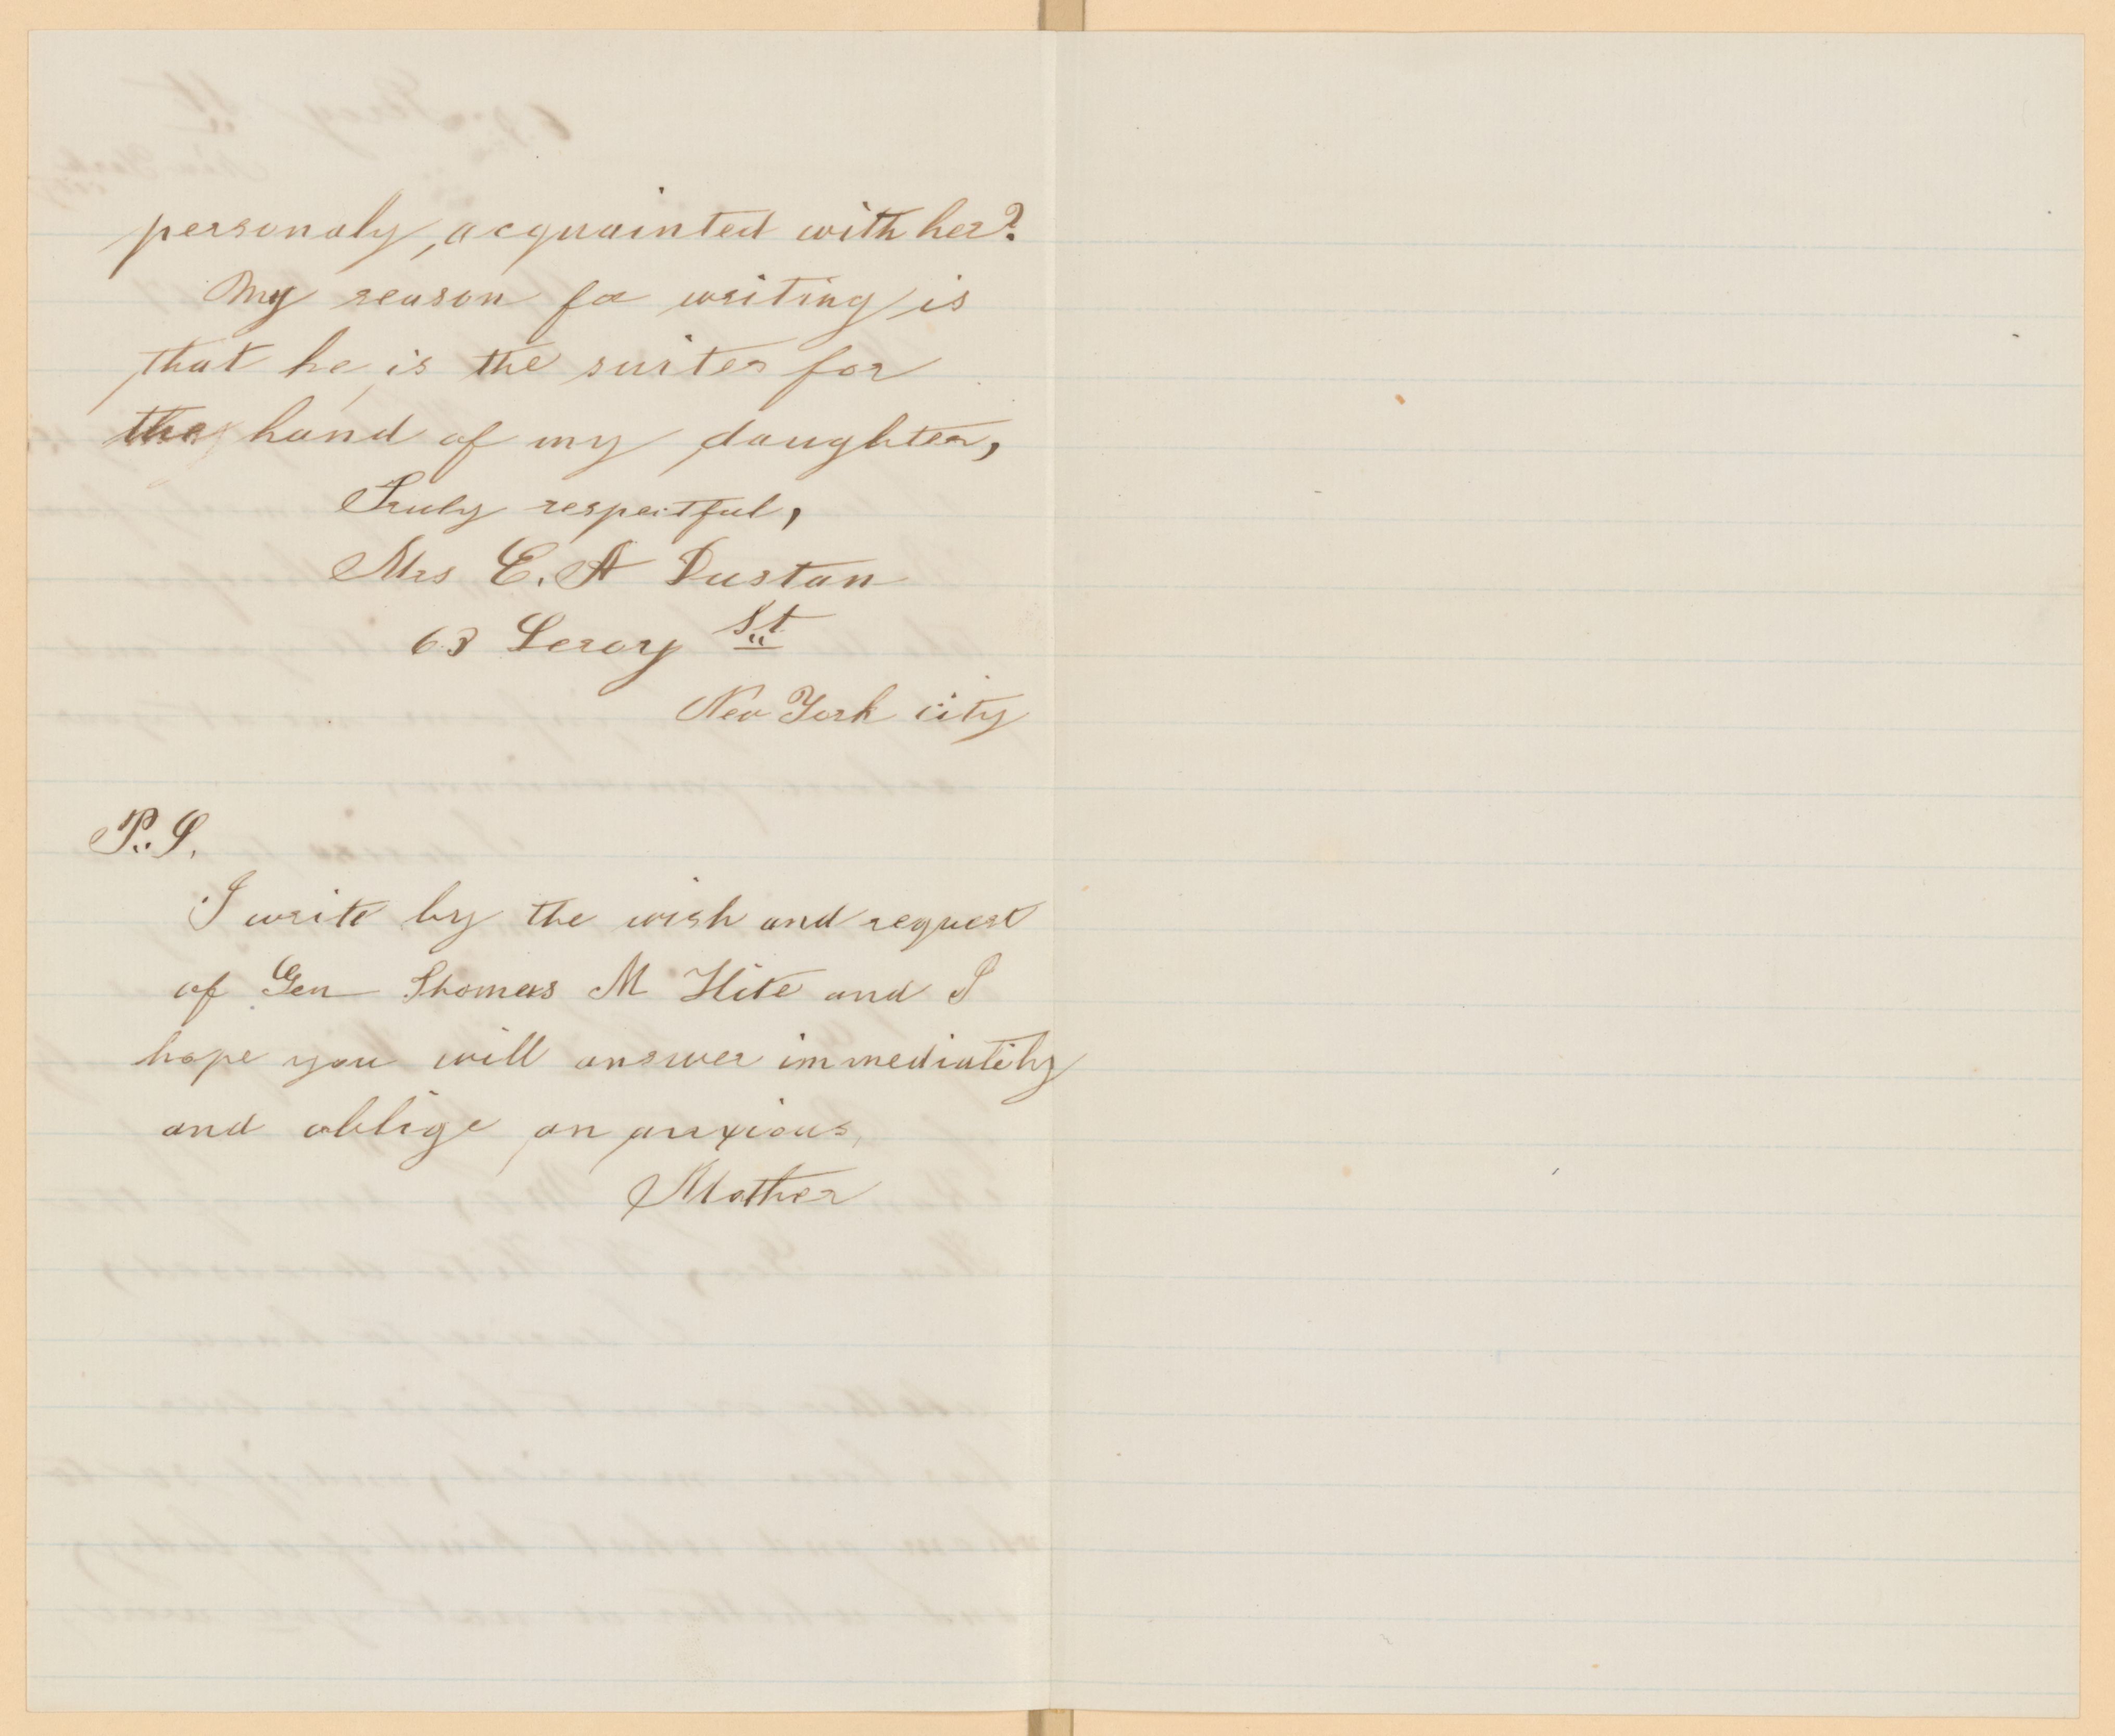 personaly, acquainted with her?
My reason for writing is
that he is the suiter for
the hand of my daughter,
Truly respectful,
Mrs E. A Dustan
63 Leroy St
New York city
P.S.
I write by the wish and request
of Gen Thomas M Hite and I
hope you will answer immediatily
and oblige an anxious
Mother